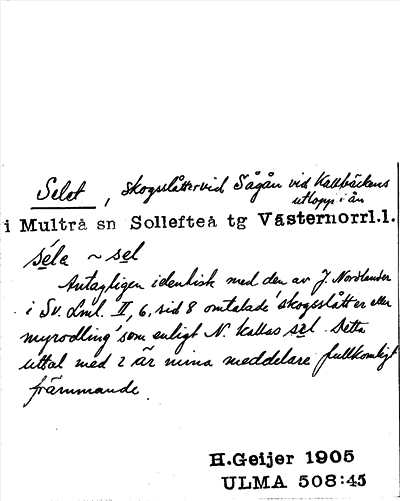 Selet, skogsslåtter vid Sågån vid Kallbäckens
utlopp i ån
i Multrå sn Sollefteå tg Västernorrl.l.
séla ~ sel
Antagligen identisk med den av J. Nordlander
i Sv. Lml. II, 6, sid 8 omtalade 'skogsslåtter eller
myrodling' som enligt N. kallas sel. Detta
uttal med l är mina meddelare fullkomligt
främmande.
H.Geijer 1905
ULMA 508:45